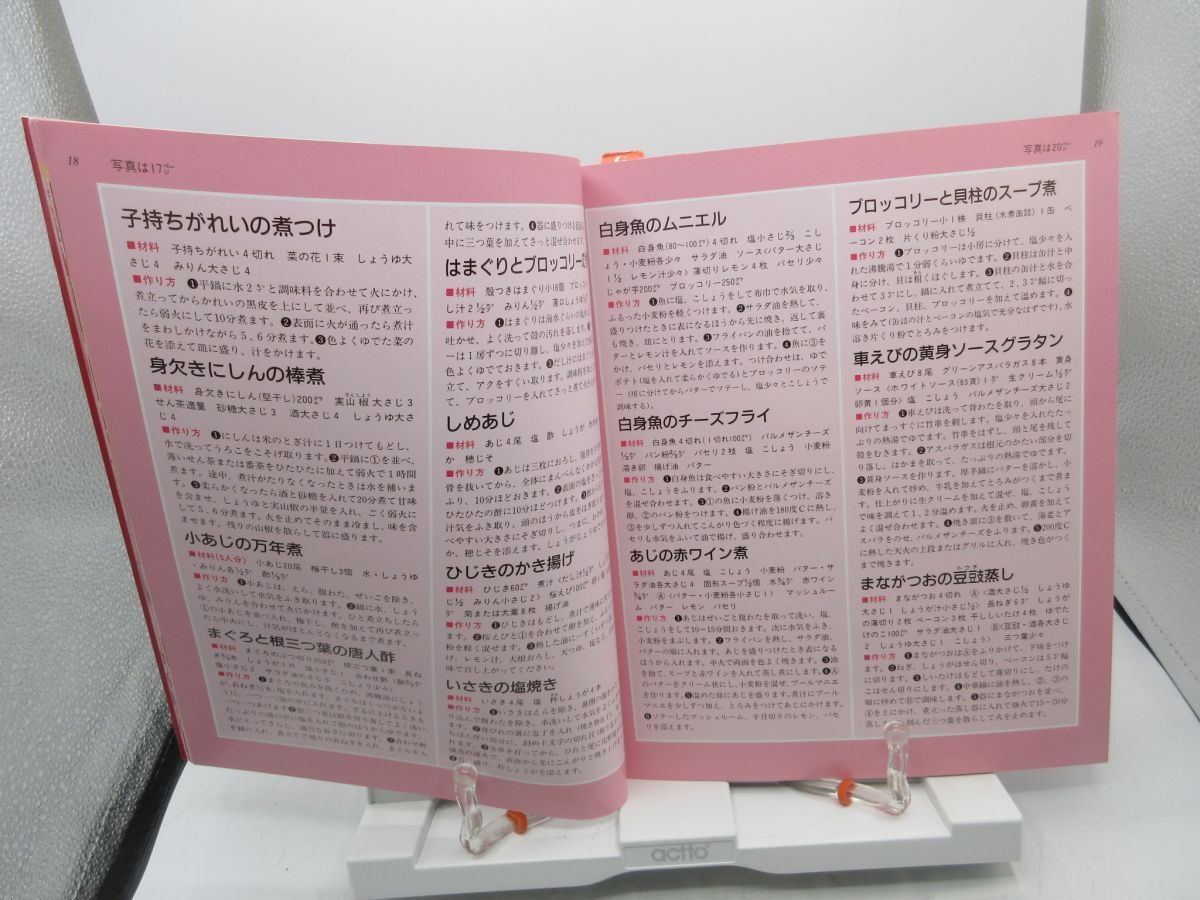 18
写真は17ページ
子持ちがれいの煮つけ
■材料 子持ちがれい4切れ 菜の花1束 しょうゆ大
さじ4 みりん大さじ4
■作り方 ❶平鍋に水2カップと調味料を合わせて火にかけ、
煮立ってからかれいの黒皮を上にして並べ、再び煮立っ
たら弱火にして10分煮ます。❷表面に火が通ったら煮汁
をまわしかけながら5、6分煮ます。❸色よくゆでた菜の
花を添えて皿に盛り、汁をかけます。
身欠きにしんの棒煮
■材料 身欠きにしん(堅干し)200グラム 実山椒大さじ3
せん茶適量 砂糖大さじ3 酒大さじ4 しょうゆ大さ
じ4
■作り方 ❶にしんは米のとぎ汁に1日つけてもどし、
水で洗ってうろこをこそげ取ります。❷平鍋に①を並べ、
薄いせん茶または番茶をひたひたに加えて弱火で1時間
煮ます。途中、煮汁がたりなくなったときは水を補いま
す。❸柔らかくなったら酒と砂糖を入れて20分煮て甘味
を含ませ、しょうゆと実山椒の半量を入れ、ごく弱火に
して5、6分煮ます。火を止めてそのまま冷まし、味を含
ませます。残りの山椒を散らして器に盛ります。
小あじの万年煮
■材料(5人分) 小あじ20尾 梅干し3個 水・しょうゆ
・みりん各½カップ 酢⅓カップ
■作り方 ❶小あじは、えら、腹わた、ぜいごを除き、
よく水洗いして水気をふき取ります。❷鍋に水、しょう
ゆ、みりんを合わせて火にかけます。ひと煮立ちしたら
①の小あじを並べ入れ、梅干し、酢を加えて再び煮立っ
たら中火にし、汁気がほとんどなくなるまで煮ます。
まぐろと根三つ葉の唐人酢
れて味をつけます。❹器に盛りつける
中に三つ葉を加えてさっと混ぜ合わせます
はまぐりとブロッコリーの
■材料 殻つきはまぐり小16個 ブロッコ
し汁2½カップ みりん½カップ 薄口しょうゆ
■作り方 ❶はまぐりは海水ぐらいの塩水に
吐かせ、よく洗って殻の汚れを落します。
ーは1房ずつに切り離し、塩少々を加え
色よくゆでておきます。❸だし汁にはまぐり
立て、アクをすくい取ります。調味料を加
て、ブロッコリーを入れてさっと煮て火を
しめあじ
■材料 あじ4尾 塩 酢 しょうが わか
か 穂じそ
■作り方 ❶あじは三枚におろし、腹骨をすき
骨を抜いてから、全体にまんべんなく
ふり、10分ほどおきます。❷表面の塩を
ひたひたの酢に10分ほどつけます。❸
汁気をふき取り、頭のほうから皮をはぎ
べやすい大きさにそぎ切りし、つまに、わか
か、穂じそを添えます。しょうがじょうゆで
ひじきのかき揚げ
■材料 ひじき60グラム 煮汁〈だし汁½カップ しょう
じ½ みりん小さじ2〉 桜えび100グラム
カップ 菊または大葉8枚 揚げ油
■作り方 ❶ひじきはもどし、煮汁で薄味に
ます。❷桜えびと①を合わせて卵を加え、
粉を軽く混ぜます。❸熱した油に
げ、レモン汁、大根おろし、天つゆ、塩など
味で召し上がってください。
いさきの塩焼き
■材料 いさき4尾 塩 杵しょうが4本
19
写真は20ページ
白身魚のムニエル
■材料 白身魚(80〜100グラム)4切れ 塩小さじ⅔ こし
ょう・小麦粉各少々 サラダ油 ソース〈バター大さじ
1½ レモン汁少々〉 薄切りレモン4枚 パセリ少々
じゃが芋200グラム ブロッコリー250グラム
■作り方 ❶魚に塩、こしょうをして布巾で水気を取り、
ふるった小麦粉を軽くつけます。❷サラダ油を熱して、
盛りつけたときに表になるほうから先に焼き、返して裏
も焼き、皿にとります。❸フライパンの油を捨てて、バ
ターとレモン汁を入れてソースを作ります。❹魚に③を
かけ、パセリとレモンを添えます。つけ合わせは、ゆで
ポテト(塩を入れて柔らかくゆでる)とブロッコリーのソテ
ー(房に分けてからバターでソテーし、塩少々とこしょうで
調味する)。
白身魚のチーズフライ
■材料 白身魚4切れ(1切れ100グラム) パルメザンチーズ
½カップ パン粉⅔カップ パセリ2枝 塩 こしょう 小麦粉
溶き卵 揚げ油 バター
■作り方 ❶白身魚は食べやすい大きさにそぎ切りにし、
塩、こしょうをふります。❷パン粉とパルメザンチーズ
を混ぜ合わせます。❸①の魚に小麦粉を薄くつけ、溶き
卵、②のパン粉をつけます。❹揚げ油を180度Cに熱し、
③を少しずつ入れてこんがり色づく程度に揚げます。パ
セリも水気をふいて油で揚げ、盛り合わせます。
あじの赤ワイン煮
■材料 あじ4尾 塩 こしょう 小麦粉 バター・サ
ラダ油各大さじ4 固形スープ½個 水¾カップ 赤ワイン
¾カップ Ⓐ〈バター・小麦粉各小さじ1〉 マッシュルー
ム バター レモン パセリ
■作り方 ❶あじはぜいごと腹わたを取って洗い、塩、
こしょうをして10〜15分間おきます。次に水気をふき、
小麦粉をまぶします。❷フライパンを熱し、サラダ油、
バターの順に入れます。あじを盛りつけたとき表になる
ほうから入れます。中火で両面を色よく焼きます。❸油
を捨て、スープと赤ワインを入れて蒸し煮にします。❹Ⓐ
のバターをクリーム状にし、小麦粉を混ぜ、ブールマニエ
を作ります。❺温めた皿にあじを盛ります。煮汁にブール
マニエを少しずつ加え、とろみをつけてあじにかけます。
❻ソテーしたマッシュルーム、半月切りのレモン、パセ
リを添えます。
ブロッコリーと貝柱のスープ煮
■材料 ブロッコリー小1株 貝柱(水煮缶詰)1缶 ベ
ーコン2枚 片くり粉大さじ½
■作り方 ❶ブロッコリーは小房に分けて、塩少々を入
れた沸騰湯で1分弱くらいゆでます。❷貝柱は缶汁と中
身に分け、貝は粗くほぐします。❸貝柱の缶汁と水を合
わせて3カップにし、鍋に入れて煮立てて、2、3ミリ幅に切っ
たベーコン、貝柱、ブロッコリーを加えて温めます。❹
味をみて(缶詰の汁とベーコンの塩気で充分なはずです)、水
溶き片くり粉でとろみをつけます。
車えびの黄身ソースグラタン
■材料 車えび8尾 グリーンアスパラガス8本 黄身
ソース〈ホワイトソース(83頁)1カップ 生クリーム½カップ
卵黄1個分〉 塩 こしょう パルメザンチーズ大さじ2
■作り方 ❶車えびは洗って背わたを取り、頭から尾に
向けてまっすぐに竹串を刺します。塩少々を入れたたっ
ぷりの熱湯でゆでます。竹串をはずし、頭と尾を残して
殻をむきます。❷アスパラガスは根元のかたい部分を切
り落し、はかまを取って、たっぷりの熱湯でゆでます。
❸黄身ソースを作ります。厚手鍋にバターを溶かし、小
麦粉を入れて炒め、牛乳を加えてとろみがつくまで煮ま
す。仕上がりに生クリームを加えて混ぜ、塩、こしょう
で味を調えて1、2分温めます。火を止め、卵黄を加えて
よく混ぜ合わせます。❹焼き皿に③を敷いて、海老とア
スパラをのせ、パルメザンチーズをふります。❺200度C
に熱した天火の上段またはグリルに入れ、焼き色がつく
まで焼きます。
まながつおの豆豉蒸し
■材料 まながつお4切れ Ⓐ〈酒大さじ½ しょうゆ
大さじ1 しょうが汁小さじ½〉 長ねぎ6センチ しょうが
の薄切り2枚 ベーコン3枚 干ししいたけ4枚 ゆでた
けのこ100グラム サラダ油大さじ1 Ⓑ〈豆豉・酒各大さじ
2 しょうゆ大さじ1 こしょう〉 三つ葉少々
■作り方 ❶まながつおはⒶをふりかけて、下味をつけ
ます。❷ねぎ、しょうがはせん切り、ベーコンは5ミリ幅
に切ります。❸しいたけはもどして薄切りにし、たけの
こはせん切りにします。❹中華鍋に油を熱し、②、③の
順に炒めてⒷで調味します。❺器にまながつおを並べて、
④を上にかけ、煮立った蒸し器に入れて強火で15〜20分
刻んだ三つ葉を散らして火を止めます。
actto